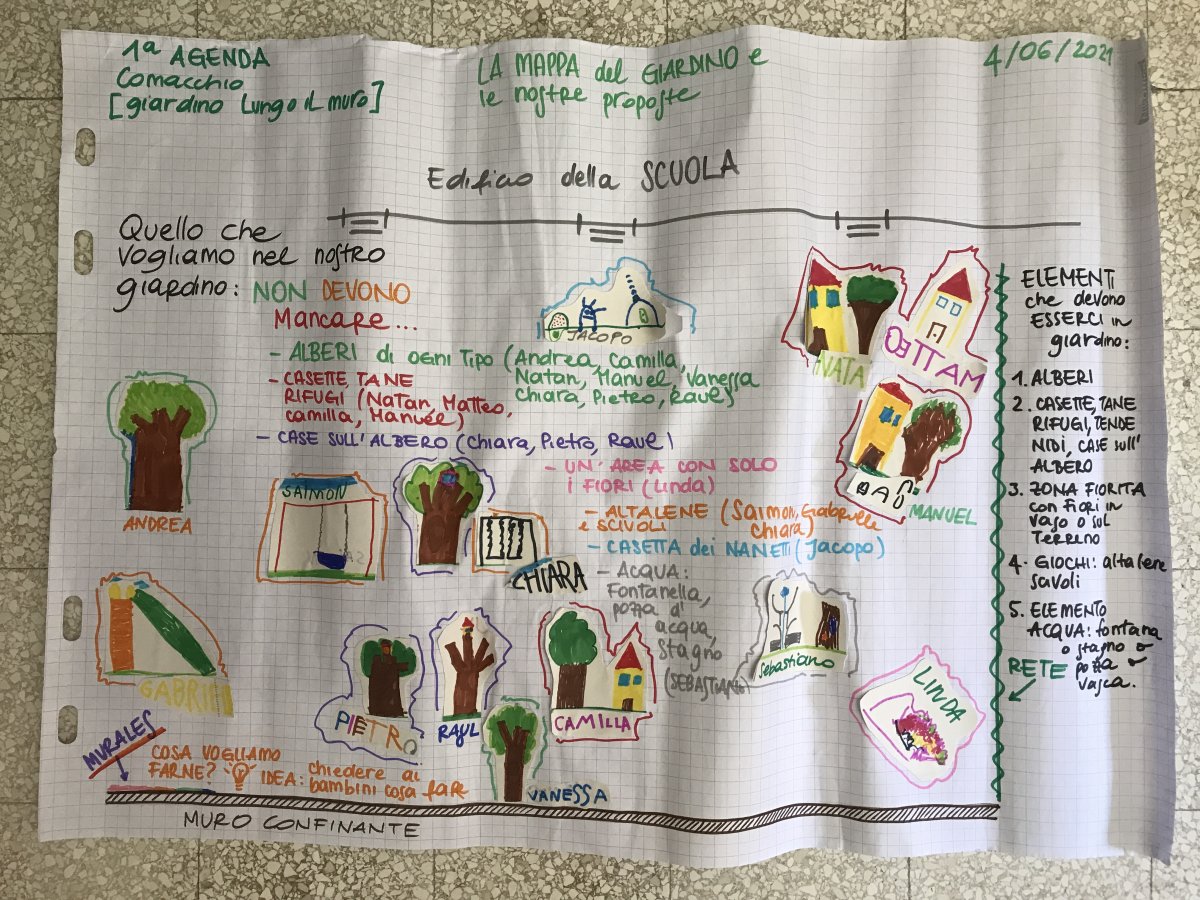 1ª AGENDA
Comacchio
[giardino Lungo il muro]
LA MAPPA del GIARDINO e
le nostre proposte
4/06/2021
Edificio della SCUOLA
Quello che
vogliamo nel nostro
giardino: NON DEVONO
Mancare...
- ALBERI di ogni tipo (Andrea, Camilla,
Natan, Manuel, Vanessa
Chiara, Pietro, Raul)
- CASETTE, TANE
RIFUGI (Natan, Matteo,
camilla, Manuel)
- CASE SULL'ALBERO (Chiara, Pietro, Raul)
- UN'AREA CON SOLO
I FIORI (Linda)
- ALTALENE (Saimon, Gabriele
e SCIVOLI Chiara)
- CASETTA dei NANETTI (Jacopo)
- ACQUA:
Fontanella,
pozza d'
acqua,
stagno
(SEBASTIANO)
JACOPO
NATA
OƎTTAM
MANUEL
ANDREA
SAIMON
CHIARA
GABRI
PIETRO
RAUL
VANESSA
CAMILLA
Sebastiano
LINDA
ELEMENTI
che devono
ESSERCI in
giardino:
1. ALBERI
2. CASETTE, TANE
RIFUGI, TENDE
NIDI, CASE SULL'
ALBERO
3. ZONA FIORITA
con Fiori in
vaso o sul
Terreno
4. GIOCHI: altalene
scivoli
5. ELEMENTO
ACQUA: fontana
o stagno o
pozza o
vasca.
RETE
MURALES
COSA VOGLIAMO
FARNE? IDEA: chiedere ai
bambini cosa fare
MURO CONFINANTE